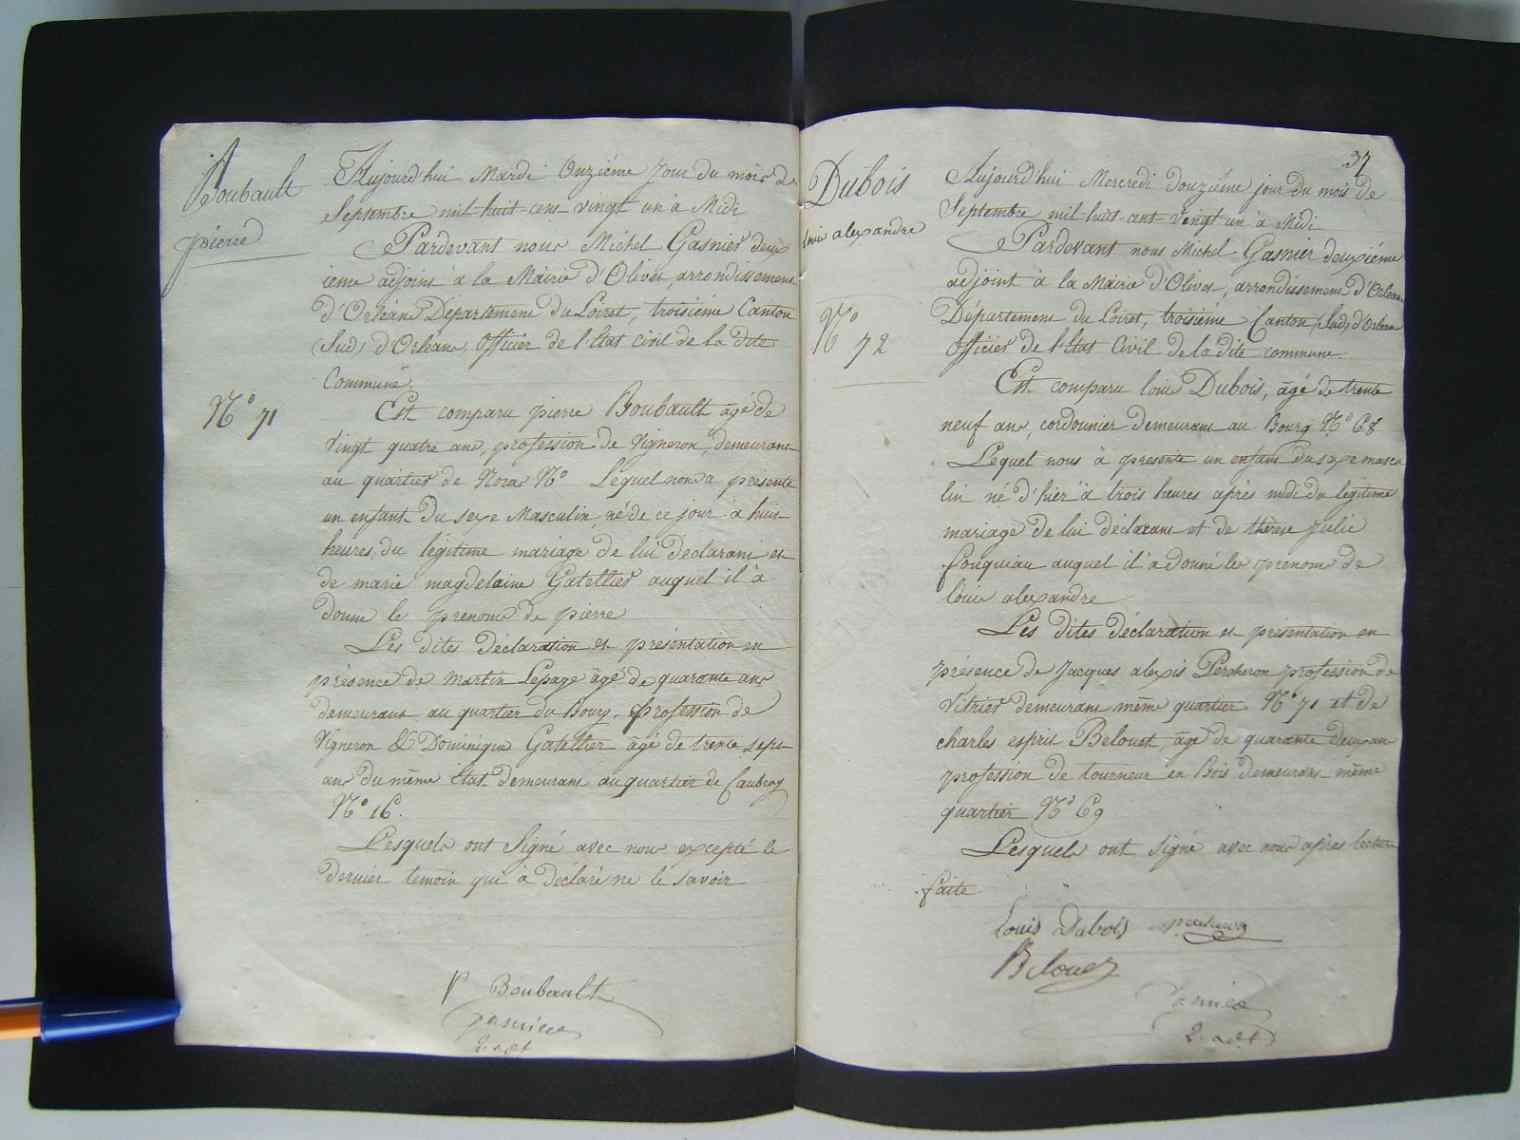 Boubault
pierre
N.° 71
Aujourd'hui Mardi Onziéme jour du mois de
Septembre mil huit cent vingt un à Midi
Pardevant nous Michel Gasnier deux
ieme adjoint à la Mairie d'Olivet, arrondissement
d'Orléans Département du Loiret, troisiéme Canton
(Sud) d'Orleans, Officier de l'Etat civil de la dite
Commune.
Est comparu pierre Boubault agé de
Vingt quatre ans, profession de Vigneron, demeurant
au quartier de N° Lequel nous a présenté
un enfant du sexe Masculin, né de ce jour à huit
heures du légitime mariage de lui Déclarant et
de marie magdelaine Gatellier auquel il à
donné le prenom de pierre
Les dites déclaration et présentation en
présence de Martin Lepage âgé de quarante ans
demeurant au quartier du Bourg, profession de
Vigneron & Dominique Gatellier âgé de trente sept
ans du même Etat demeurant au quartier de Caubray
N° 16.
Lesquels ont Signé avec nous excepté le
dernier temoin qui a déclaré ne le savoir
P Boubault
gasnier
2. adt
37
Dubois
louis alexandre
N.° 72
Aujourd'hui Mercredi douziéme jour du mois de
Septembre mil huit cent vingt un à Midi
Pardevant nous Michel Gasnier deuxiéme
adjoint à la Mairie d'Olivet, arrondissement d'Orleans
Département du Loiret, troisiéme Canton (Sud) d'Orleans
Officier de l'Etat Civil de la dite commune.
Est comparu louis Dubois, âgé de trente
neuf ans, cordonnier demeurant au Bourg N.° 68
Lequel nous à presenté un enfant du sexe mascu
lin né d'hier à trois heures après midi du légitime
mariage de lui déclarant et de thérese julie
fouqueau auquel il à donné les prenoms de
louis alexandre
Les dites déclaration et présentation en
présence de Jacques alexis Percheron profession de
Vitrier demeurant même quartier N° 71 et de
charles esprit Belouet âgé de quarante deux ans
profession de tourneur en Bois demeurant même
quartier N° 69
Lesquels ont signé avec nous après lecture
faite
Louis Dubois percheron
Belouet
Gasnier
2. adt